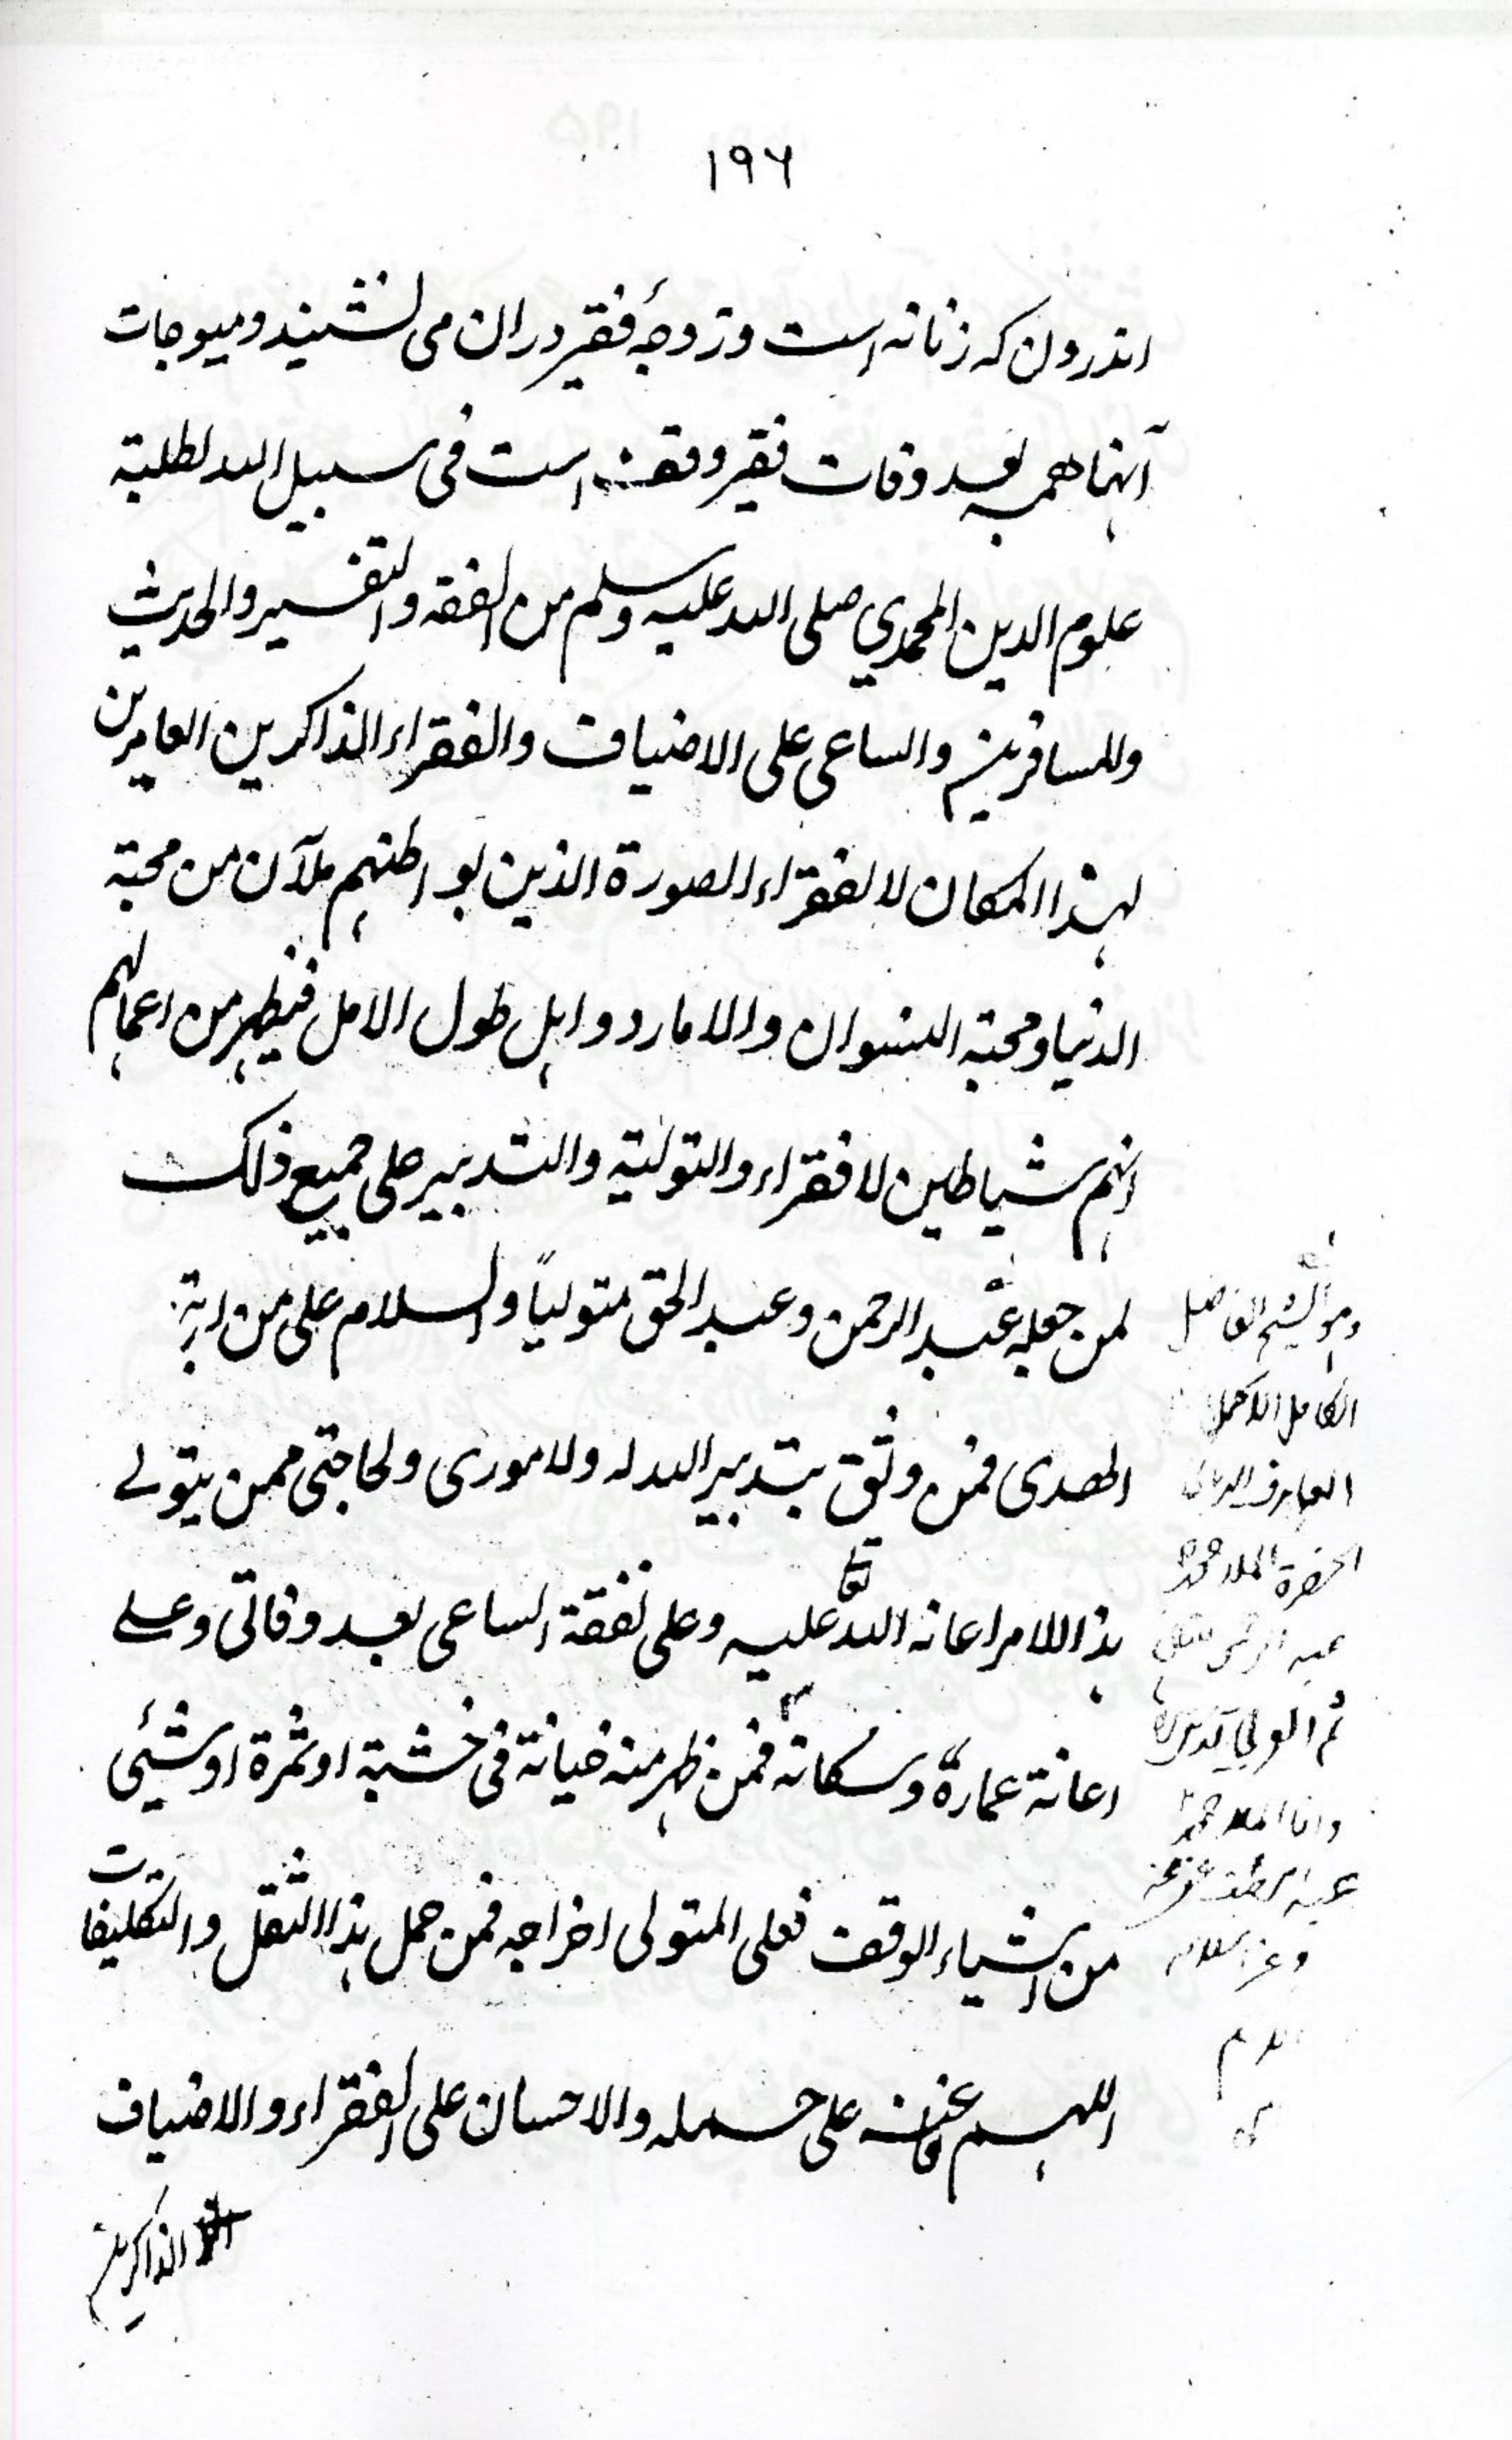 ۱۹۶
اندرون که زنانه است وزوجهٔ فقیر دران می نشیند ومیوجات
آنها همه بعد وفات فقیر وقف است فی سبیل الله لطلبة
علوم الدین المحمدي صلی الله علیه وسلم من الفقه والتفسیر والحدیث
وللمسافرین والساعی علی الاضیاف والفقراء الذاکرین العامرین
لهذا المکان لا لفقراء الصورة الذین بواطنهم ملآن من محبة
الدنیا ومحبة النسوان والامارد واهل طول الامل فیظهر من اعمالهم
انهم شیاطین لا فقراء والتولیة والتدبیر علی جمیع ذلک
لمن جعله عبد الرحمن وعبد الحق متولیاً والسلام علی من اتبع
الهدی فمن وثق بتدبیر الله له ولاموری ولحاجتی ممن یتولے
هذا الامر اعانه الله تعا علیه وعلی نفقة الساعی بعد وفاتی وعلے
اعانة عمارة وسکانه فمن ظهر منه خیانة فی خشبة او ثمرة او شئی
من اشیاء الوقف فعلی المتولی اخراجه فمن حمل هذا الثقل والتکلیفات
اللهم علی حمله والاحسان علی الفقراء والاضیاف
الذاکرین
وهو الشیخ الفاضل
الکامل الاکمل
العارف
الحضرة الملا محمد
ثم الولی
وانا الملا